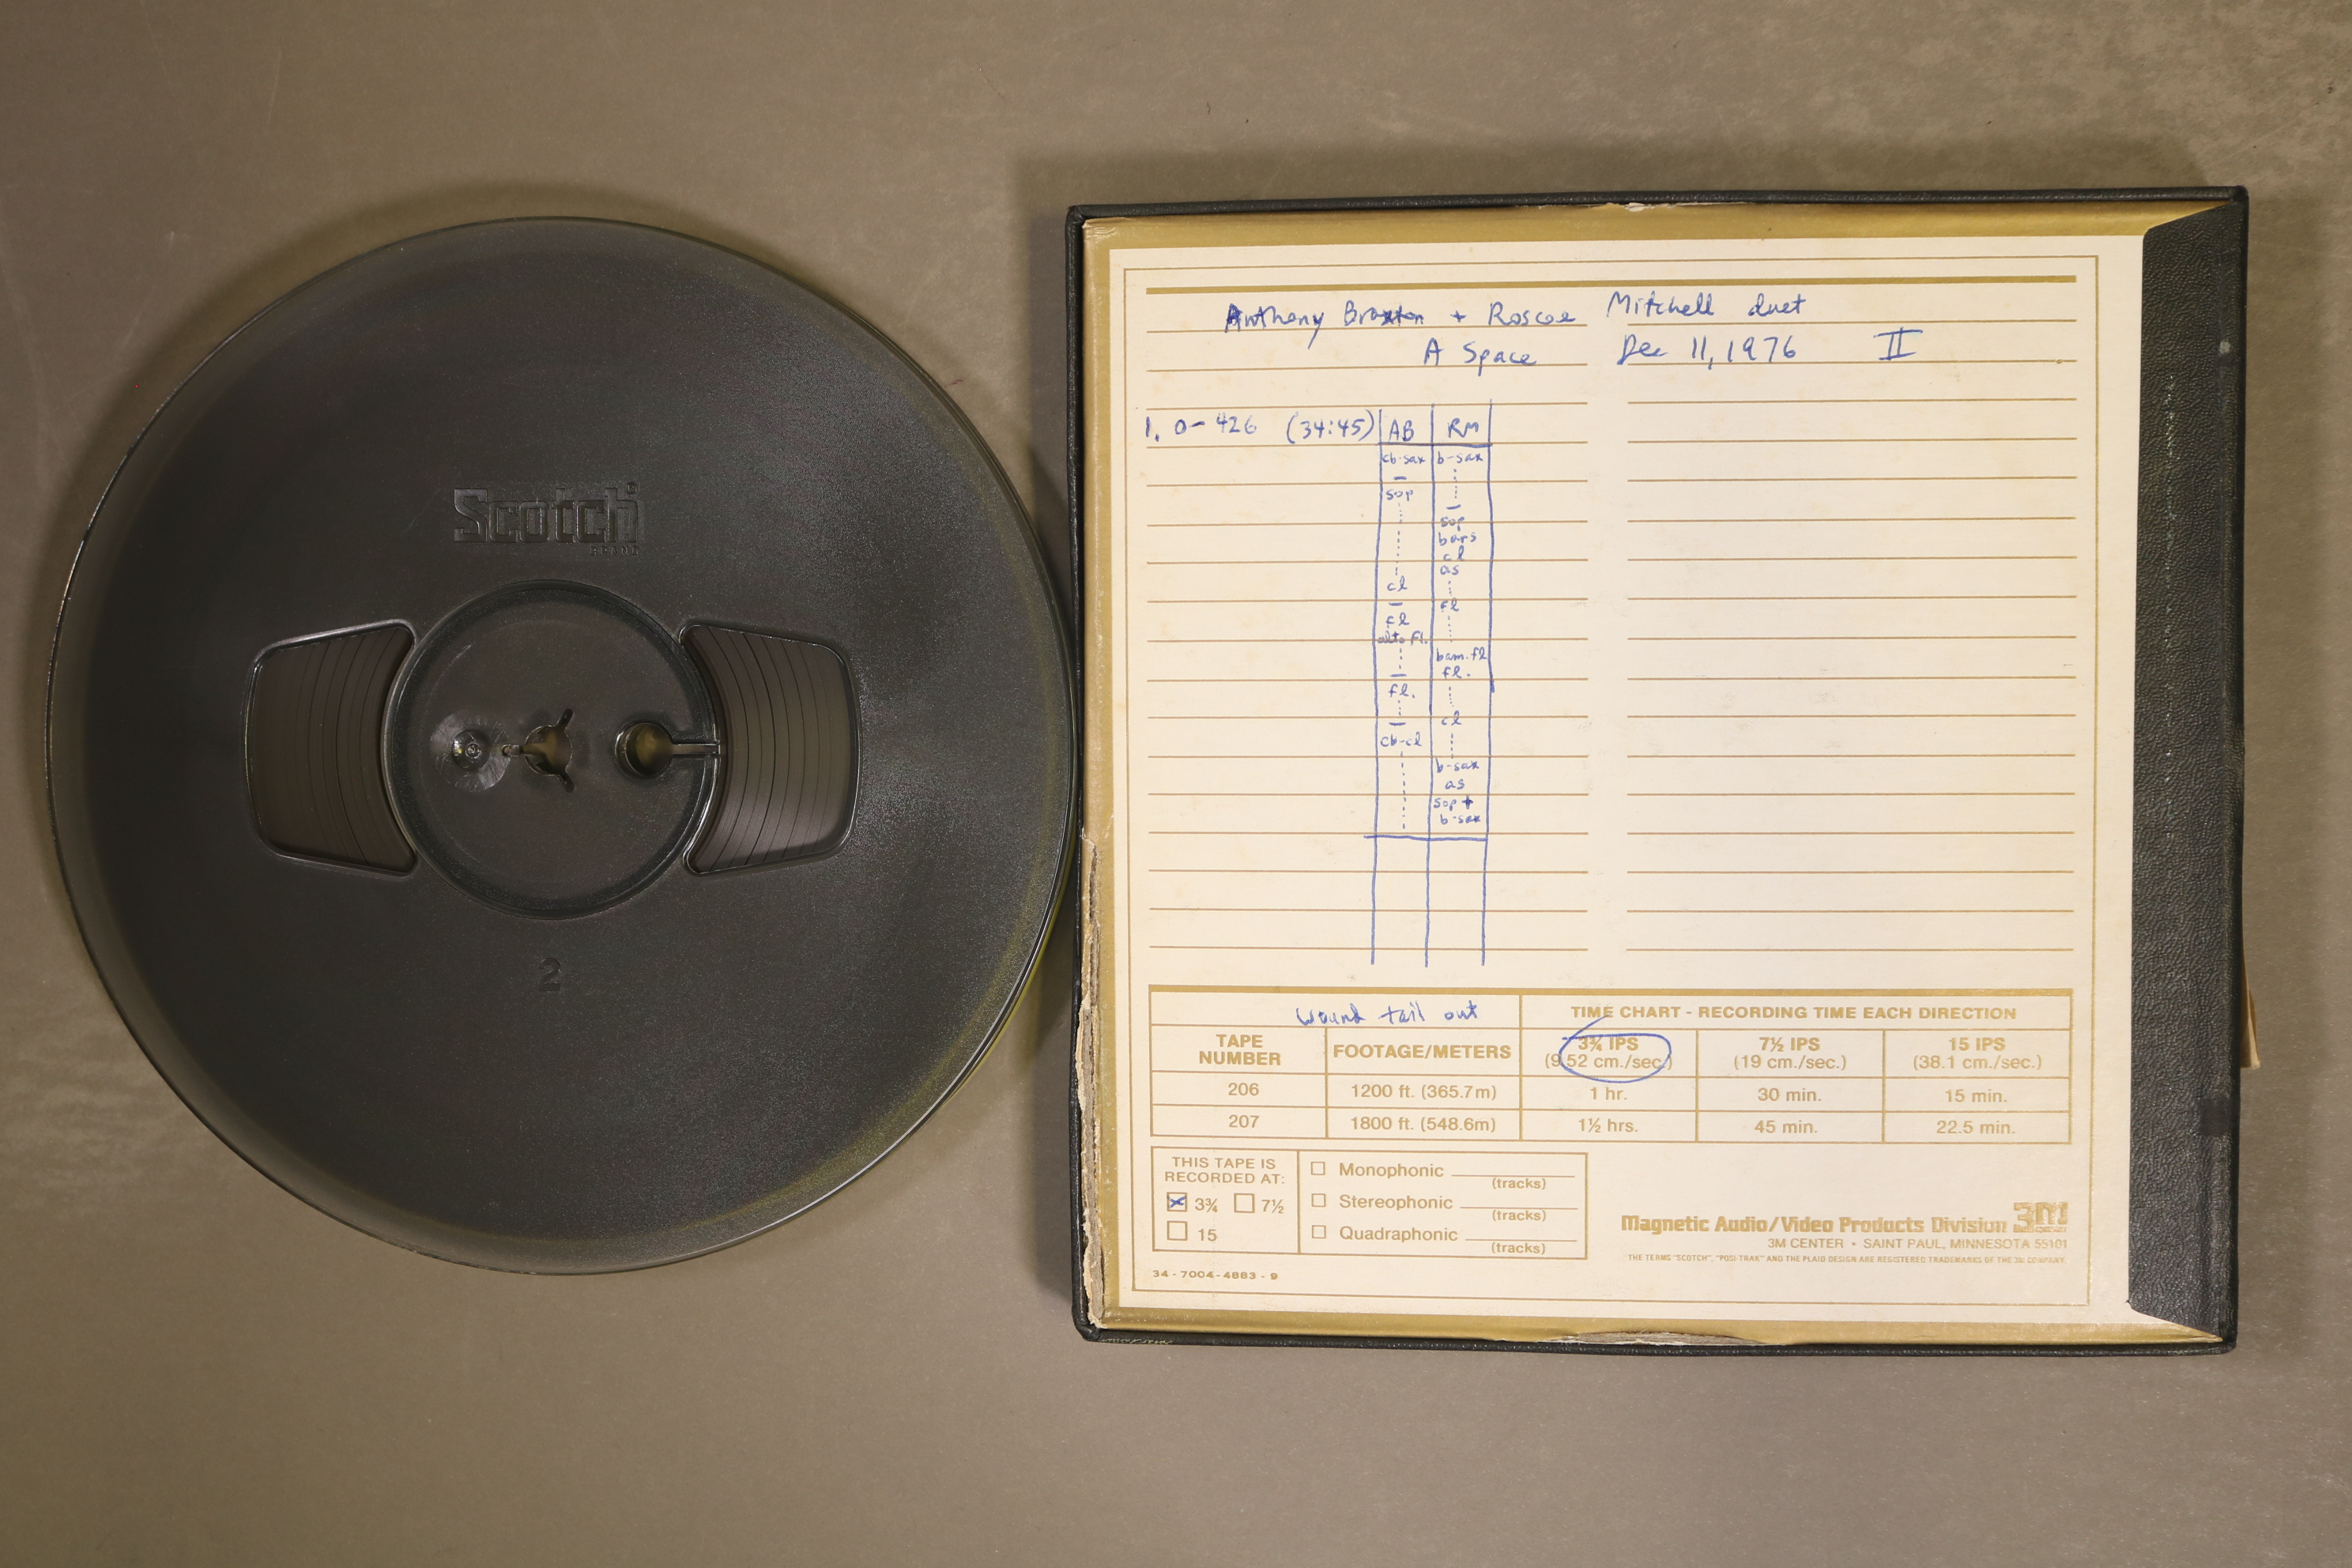 Scotch
BRAND
2
Anthony Braxton + Roscoe Mitchell duet
A Space Dec 11, 1976 II
1. 0-426 (34:45) AB RM
cb-sax b-sax
sop
sop
bars
cl
as
cl
fl
fl
alto fl.
bam. fl
fl.
fl.
cl
cb-cl
b-sax
as
sop +
b-sax
wound tail out
TIME CHART - RECORDING TIME EACH DIRECTION
TAPE NUMBER FOOTAGE/METERS 3¾ IPS (9.52 cm./sec.) 7½ IPS (19 cm./sec.) 15 IPS (38.1 cm./sec.)
206 1200 ft. (365.7m) 1 hr. 30 min. 15 min.
207 1800 ft. (548.6m) 1½ hrs. 45 min. 22.5 min.
THIS TAPE IS
RECORDED AT:
3¾ 7½
15
Monophonic
(tracks)
Stereophonic
(tracks)
Quadraphonic
(tracks)
Magnetic Audio/Video Products Division 3M
3M CENTER • SAINT PAUL, MINNESOTA 55101
THE TERMS "SCOTCH", "POSI-TRAK" AND THE PLAID DESIGN ARE REGISTERED TRADEMARKS OF THE 3M COMPANY.
34-7004-4883-9